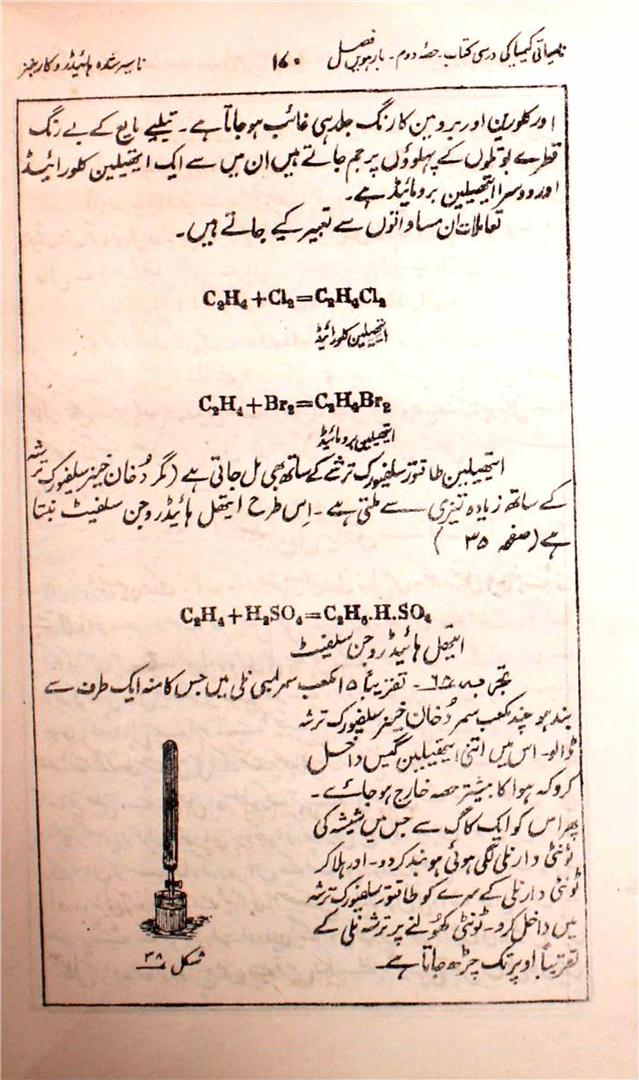 نامیاتی کیمیا کی درسی کتاب۔ حصۂ دوم۔ بارہویں فصل ۱۷۰ ناسیر شدہ ہائیڈروکاربنز
اور کلورین اور برومین کا رنگ جلد ہی غائب ہو جاتا ہے۔ تیلیے مایع کے بے رنگ
قطرے بوتلوں کے پہلوؤں پر جم جاتے ہیں ان میں سے ایک ایتھیلین کلورائیڈ
اور دوسرا ایتھیلین برومائیڈ ہے۔
تعاملات ان مساواتوں سے تعبیر کیے جاتے ہیں۔
C₂H₄+Cl₂=C₂H₄Cl₂
ایتھیلین کلورائیڈ
C₂H₄+Br₂=C₂H₄Br₂
ایتھیلین برومائیڈ
ایتھیلین طاقتور سلفیورک ترشے کے ساتھ بھی مل جاتی ہے (مگر دُخان خیز سلفیورک ترشہ
کے ساتھ زیادہ تیزی سے ملتی ہے۔ اِس طرح ایتھل ہائیڈروجن سلفیٹ بنتا
ہے (صفحہ ۳۵)
C₂H₄+H₂SO₄=C₂H₅.H.SO₄
ایتھل ہائیڈروجن سلفیٹ
تجربہ ۶۵۔ تقریباً ۱۵ مکعب سمر لمبی نلی میں جس کا منہ ایک طرف سے
بند ہو چند مکعب سمر دُخان خیز سلفیورک ترشہ
ڈالو۔ اس میں اتنی ایتھیلین گیس داخل
کرو کہ ہوا کا بیشتر حصہ خارج ہو جائے۔
پھر اس کو ایک کاگ سے جس میں شیشہ کی
ٹونٹی دار نلی لگی ہوئی ہو بند کر دو۔ اور ہلا کر
ٹونٹی دار نلی کے سرے کو طاقتور سلفیورک ترشہ
میں داخل کرو۔ ٹونٹی کھولنے پر ترشہ نلی کے
تقریباً اوپر تک چڑھ جاتا ہے۔
شکل ۳۸